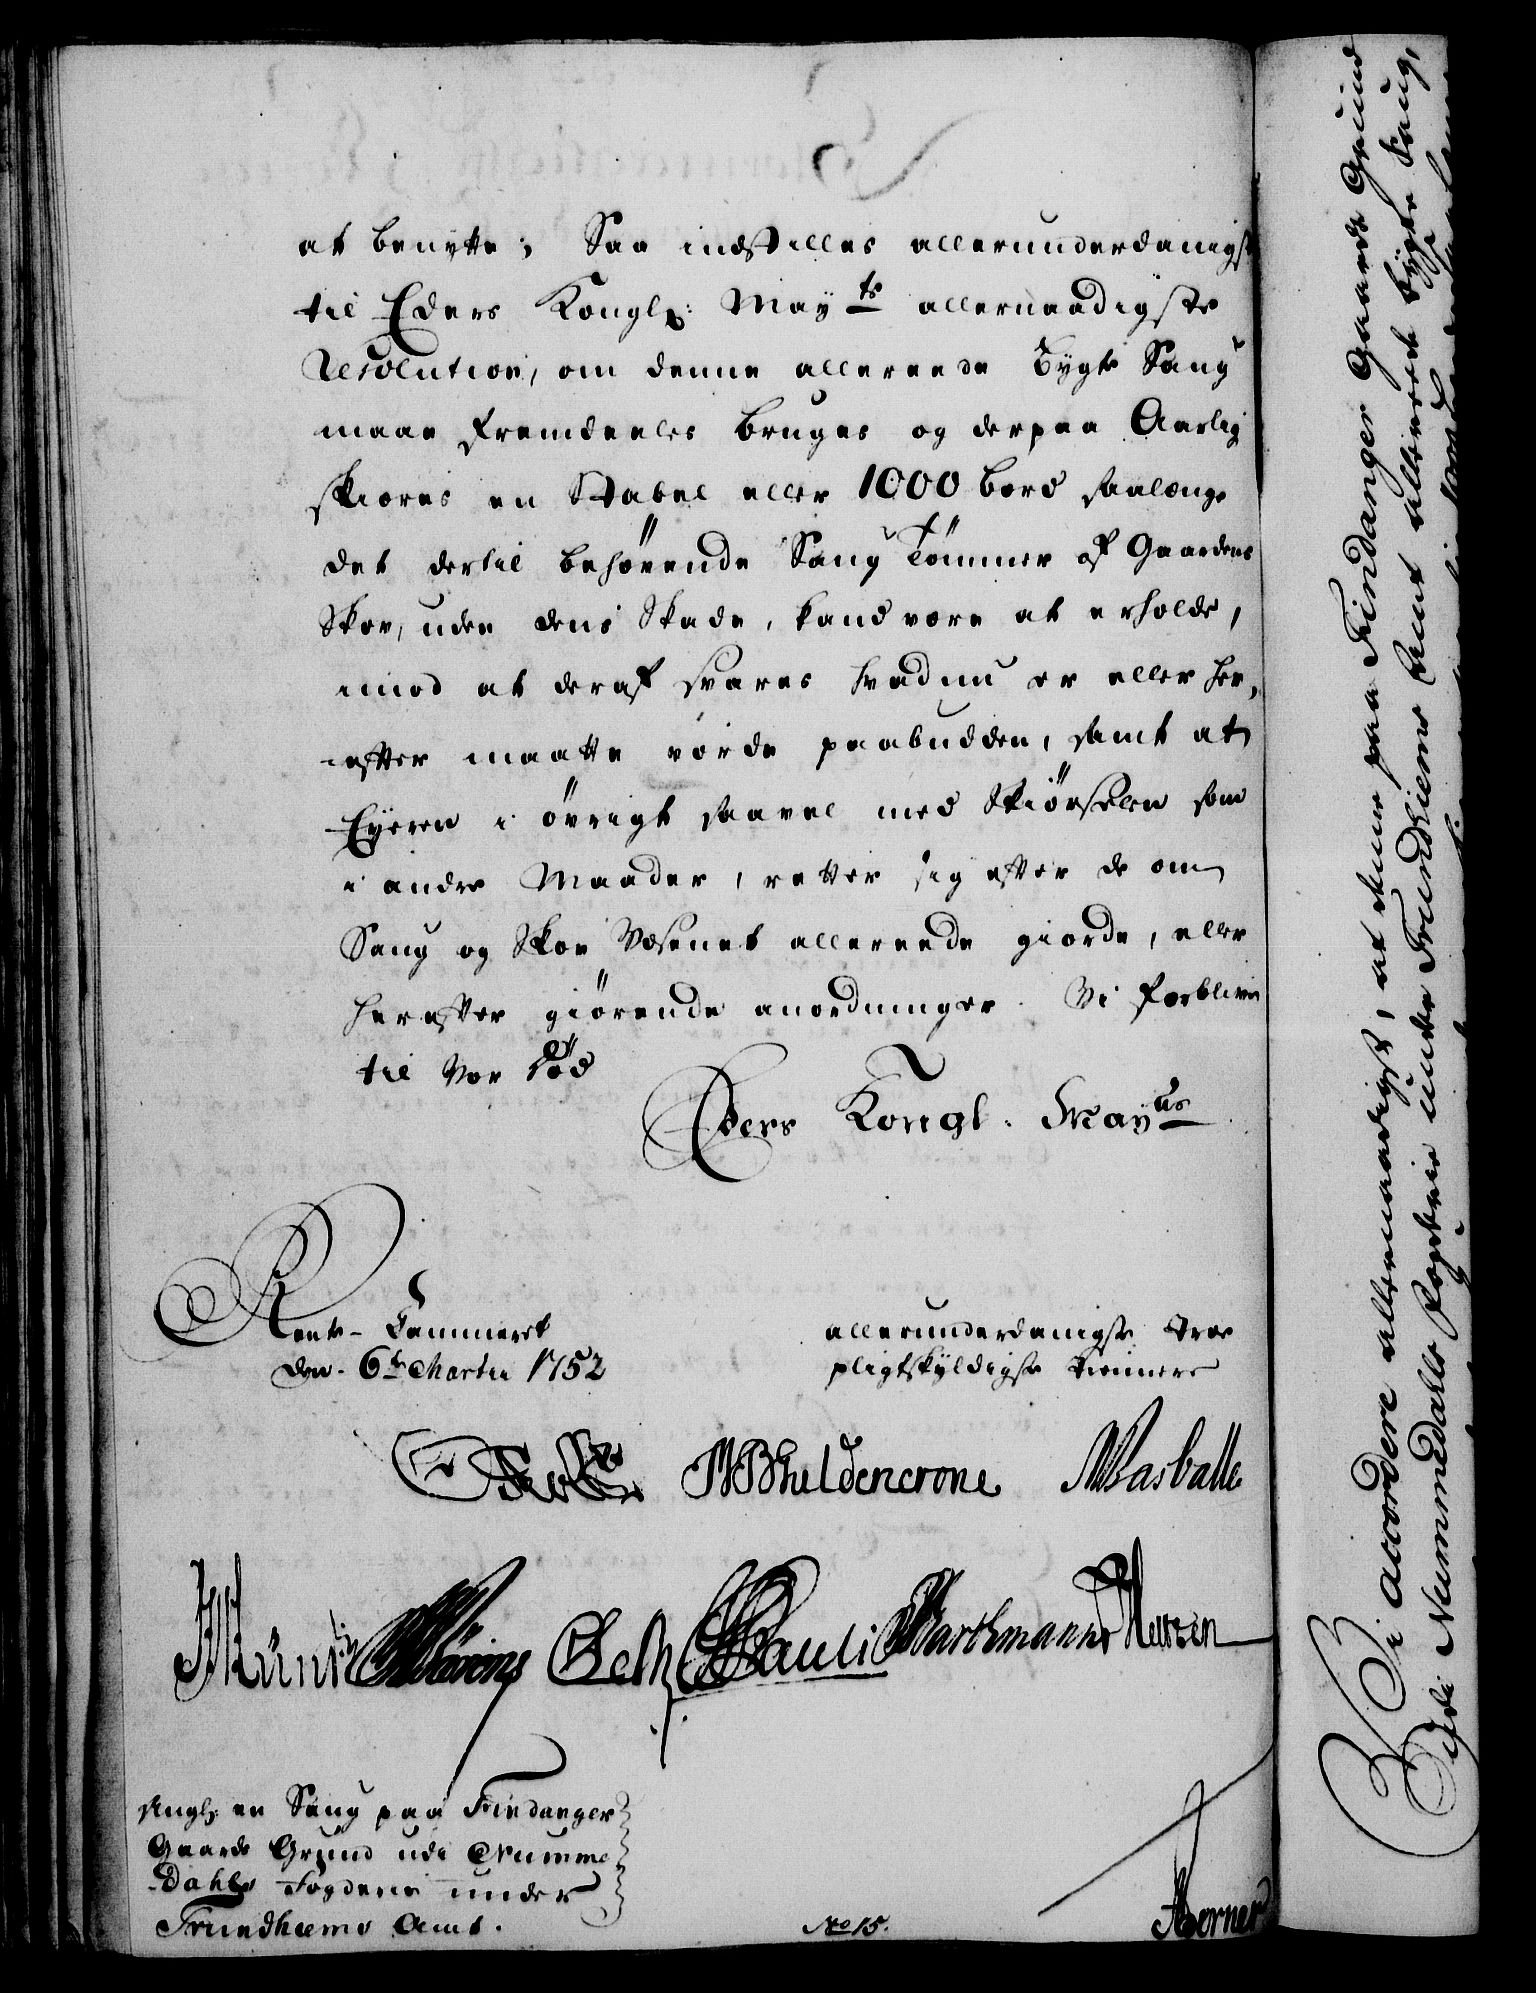 at benytte; Saa indstilles allerunderdanigst
til Eders Kongl: May.ts allernaadigste
Resolution, om denne allereede Bygte Saug
maae fremdeeles bruges og derpaa Aarlig
skiæres en Stabel eller 1000 bord saalænge
det dertil behövende Saug Tömmer af Gaardens
Skov, uden dens Skade, kand være at erholde,
imod at deraf svares hvad nu er eller her,
efter maatte vorde paabudden, samt at
Eyeren i övrigt saavel med Skiörselen som
i andre Maader, retter sig efter de om
Saug og Skov Væsenet allereede giorde, eller
herefter giörende anordninger. Vi forblive
til Vor död
Eders Kongl. Mayts
Rente-Cammeret
den 6te Martii 1752
allerunderdanigste troe
pligtskyldigste tiennere
Heldencrone Masballe
Oeth Pauli Barthmann
Angl: en Saug paa Findanger
Gaards Grund udi Numme
Dahls Fogderie under
Trundhiems Amt.
No 15.
Vi accordere allernaadigst, at denne paa Findanger Gaards Grund
udi Nummedahls Fogderie under Trundhiems Amt allereede bygte Saug,